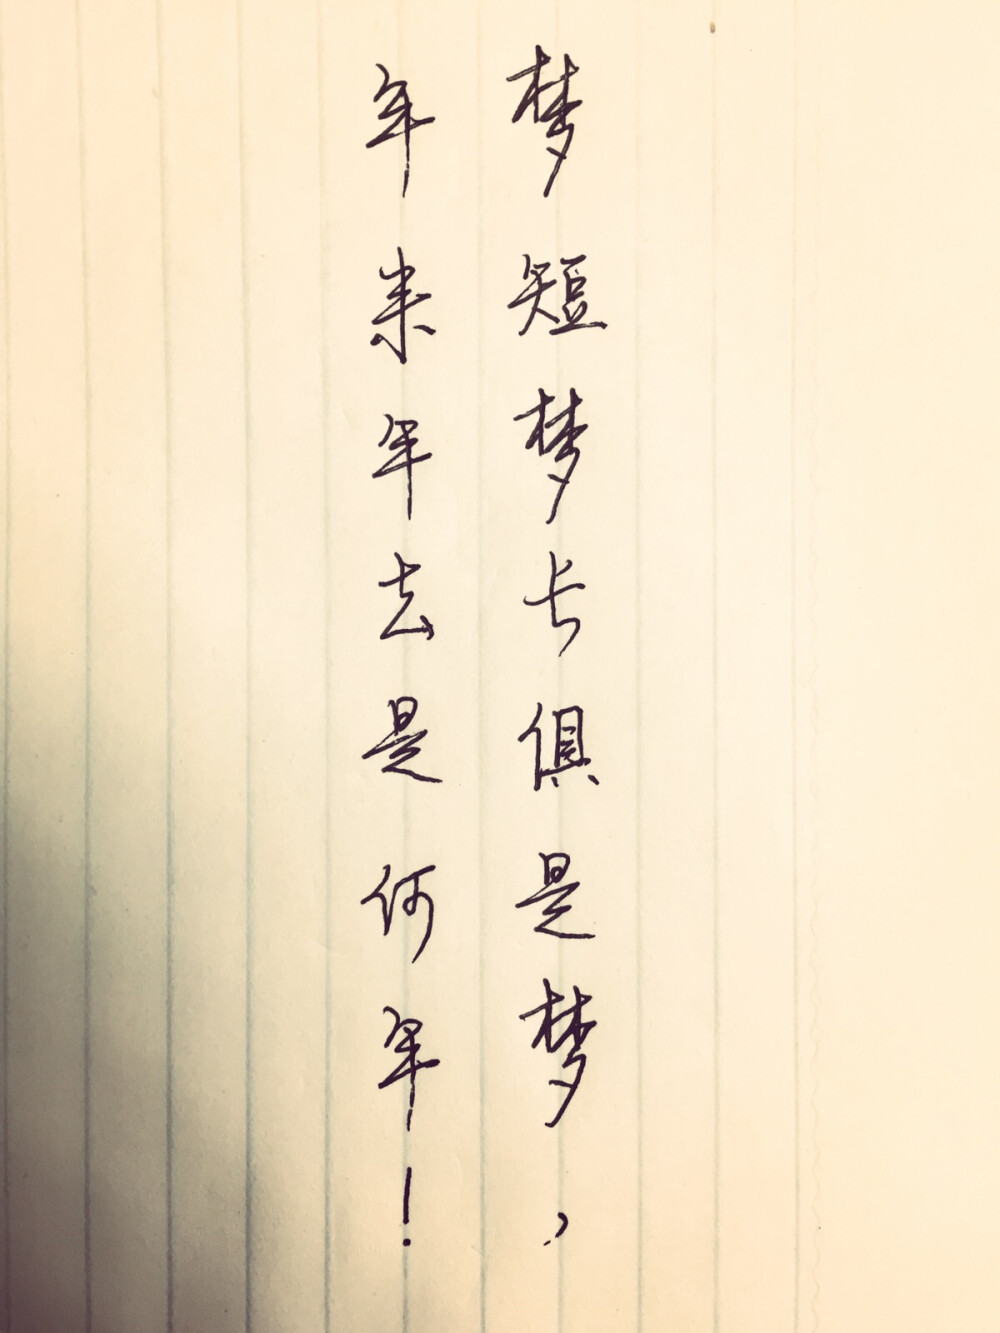 梦短梦长俱是梦，
年来年去是何年！